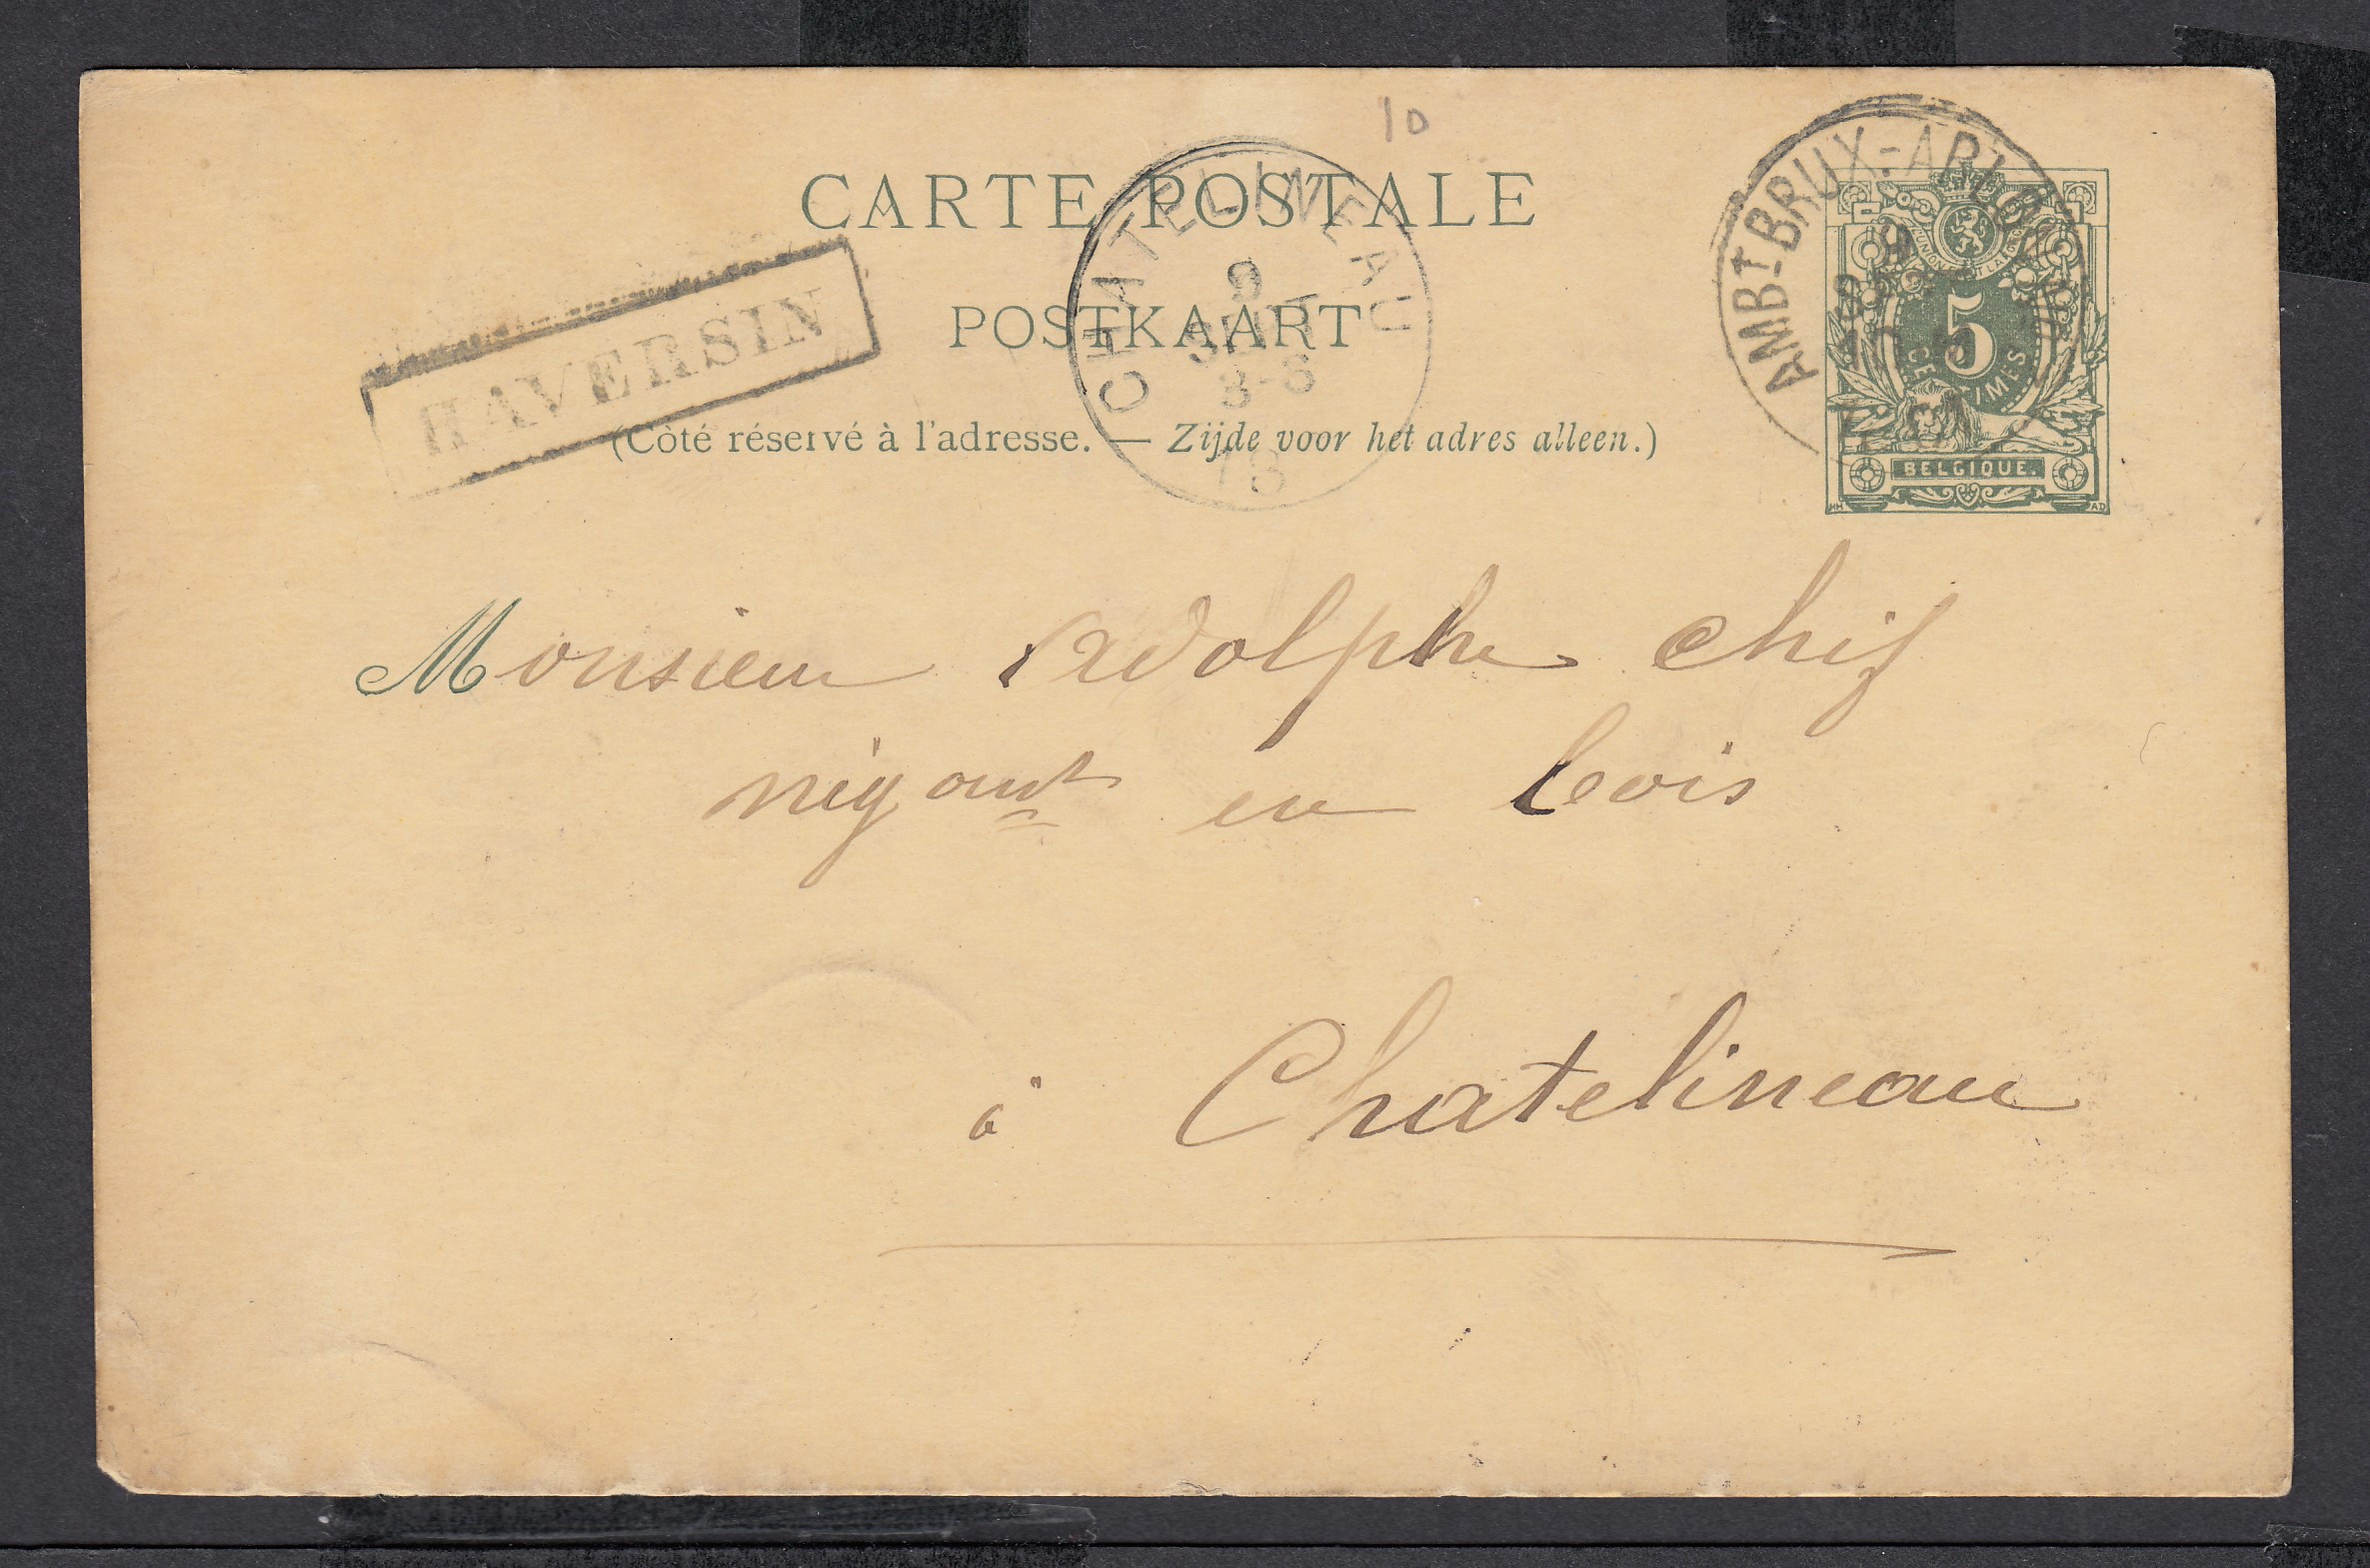 10
CARTE POSTALE
POSTKAART
(Côté réservé à l'adresse. — Zijde voor het adres alleen.)
HAVERSIN
CHATELINEAU
9
SEPT
3-S
AMBT BRUX.-ARLON
5
CENTIMES
BELGIQUE.
HH
AD
Monsieur Adolphe Chif
négoант en bois
à Chatelineau